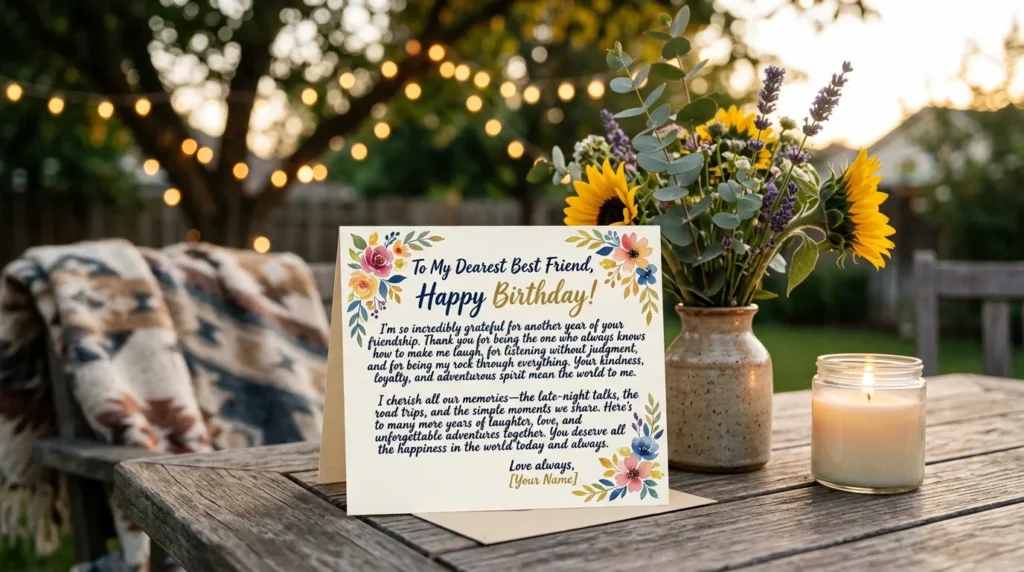 To My Dearest Best Friend,
Happy Birthday!
I'm so incredibly grateful for another year of your
friendship. Thank you for being the one who always knows
how to make me laugh, for listening without judgment,
and for being my rock through everything. Your kindness,
loyalty, and adventurous spirit mean the world to me.
I cherish all our memories—the late-night talks, the
road trips, and the simple moments we share. Here's
to many more years of laughter, love, and
unforgettable adventures together. You deserve all
the happiness in the world today and always.
Love always,
[Your Name]